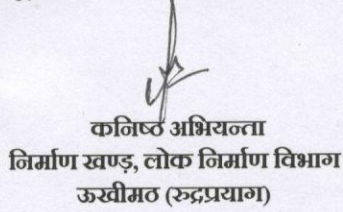 कनिष्ठ अभियन्ता
निर्माण खण्ड, लोक निर्माण विभाग
ऊखीमठ (रुद्रप्रयाग)